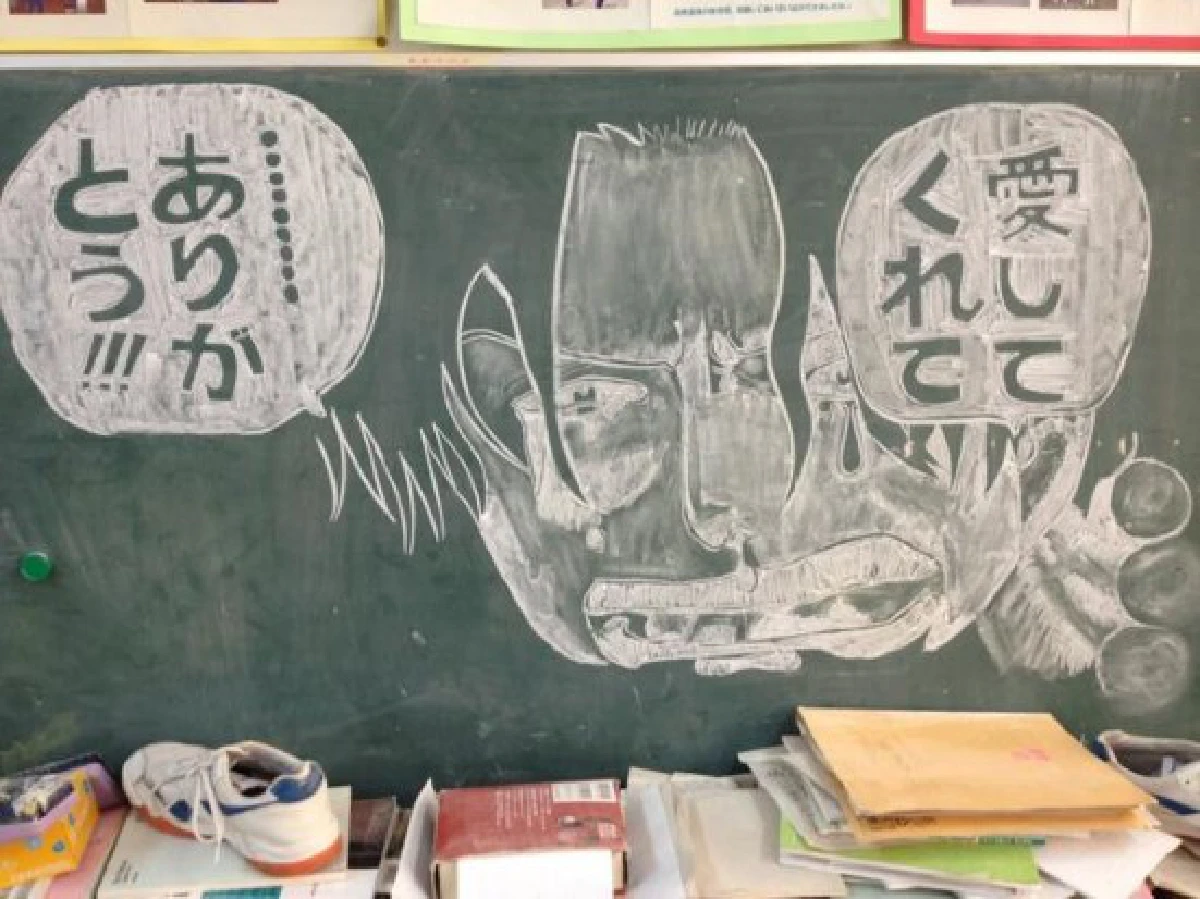 愛して
くれて
………
ありが
とう!!!